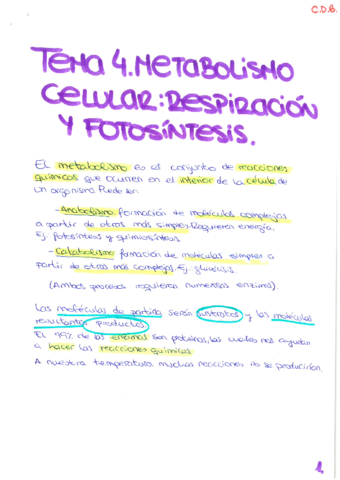 C.D.B.
TEMA 4. METABOLISMO
CELULAR: RESPIRACIÓN
Y FOTOSÍNTESIS.
El metabolismo es el conjunto de reacciones
químicas que ocurren en el interior de la célula de
un organismo. Puede ser:
- Anabolismo: formación de moléculas complejas
a partir de otras más simples. Requieren energía.
Ej: fotosíntesis y quimiosíntesis.
- Catabolismo: formación de moléculas simples a
partir de otras más complejas. Ej: glucólisis.
(Ambos procesos requieren numerosas enzimas).
Las moléculas de partida serán sustratos y las moléculas
resultantes productos.
El 99% de las enzimas son proteínas, las cuales nos ayudan
a hacer las reacciones químicas.
A nuestra temperatura muchas reacciones no se producirían.
1.